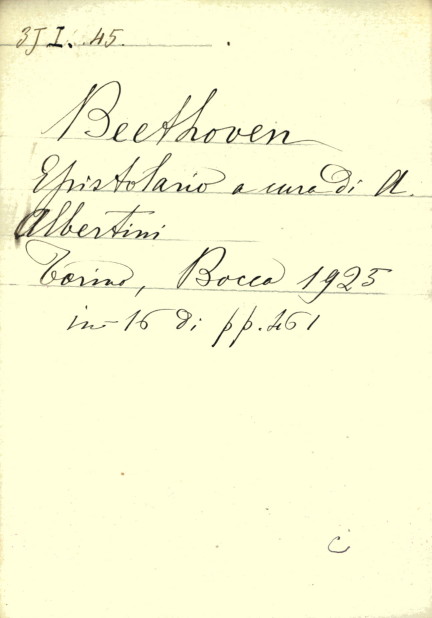 35 I. 45.
Beethoven
Epistolario a cura di A.
Albertini
Torino, Bocca 1925
in-16 di pp. 461
C